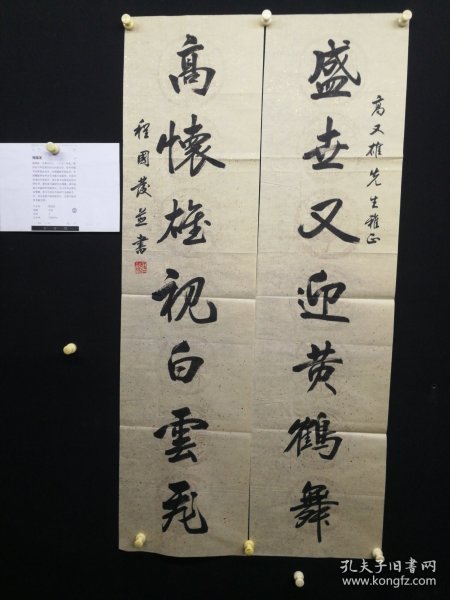 高又雄先生雅正
盛世又迎黄鶴舞
高懷雄視白雲飛
程國發並書
孔夫子旧书网
www.kongfz.com